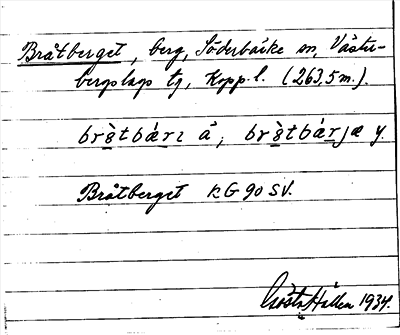 Bråtberget, berg, Söderbärke sn, Väster-
bergslags tg, Kopp. l. (263,5 m.).
brὰ̀tbǽrɪ å, ; brὰ̀tbǽrjæ y.
Bråtberget kG 90 SV.
Gösta Hallén 1934.